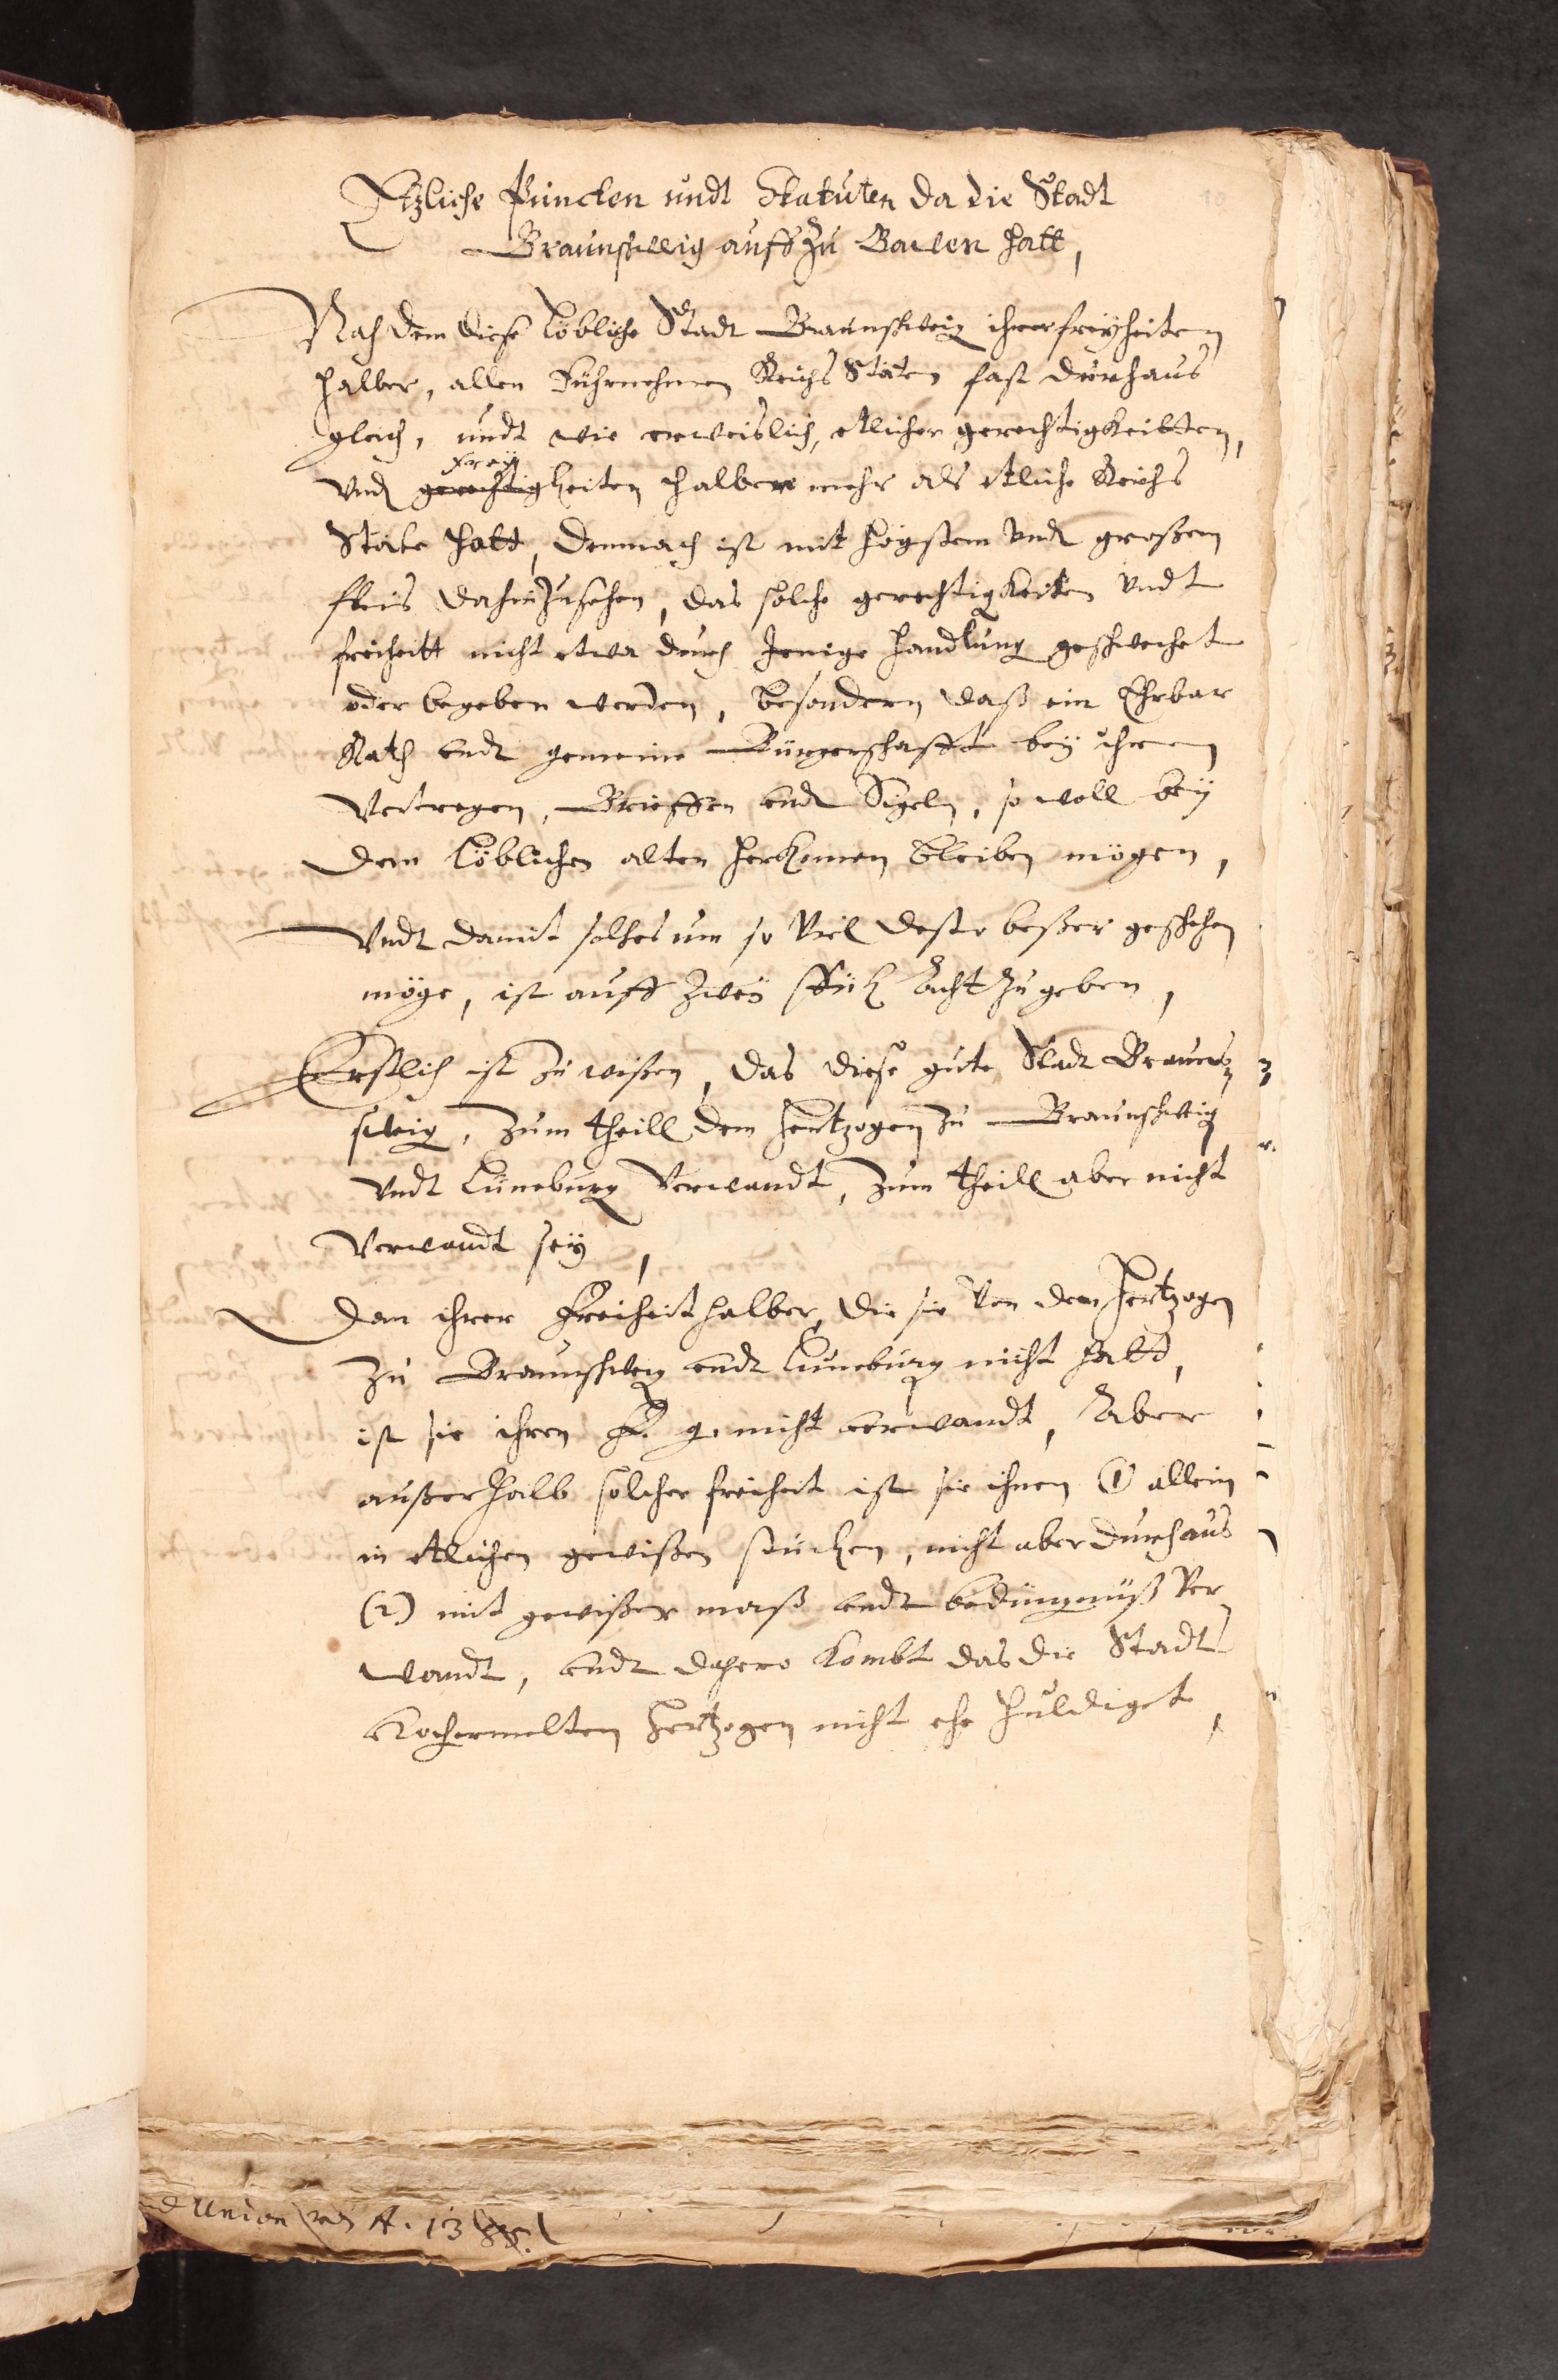 Etzliche Puncten undt Statuten da die Stadt
Braunschweig auff zu Bawen hatt,
Nach dem diese Löbliche Stadt Braunschweig ihrer freyheiten
halber, allen Fuhrnehmen Reichs Stäten fast durchaus
gleich, undt wie erweislich, etlicher gerechtigkeitten,
frey
Und gerechtigheiten halber mehr als etliche Reichs
Stäte hatt, Demnach ist mit högstem Und großem
fleis dahin zusehen, das solche gerechtigkeiten Undt
freiheitt nicht etwa durch Jenige handlung geschwechet
oder begeben werden, besondern daß ein Ehrbar
Rath undt gemeine Bürgerschafft bey ihrem
Vertregen, Brieffen und Sigeln, so woll bey
dem Löblichen alten herkomen bleiben mögen,
Undt damit solches um so Viel desto beßer geschehen
möge, ist auff zwey stück acht zu geben,
Erstlich ist zu wißen, das diese gute Stadt Brauns
schweig, zum theill dem hertzogen zu Braunschweig
Undt Lüneburg Verwandt, zum theill aber nicht
Verwandt sey,
Dan ihrer Freiheit halber, die sie Von dem Hertzogen
zu Braunschweig undt Luneburg nicht hatt,
ist sie ihren F. g. nicht verwandt, Aber
außerhalb solcher freiheit ist sie ihnen (1) allein
in etlichen gewißen stucken, nicht aber durchaus
(2) mit gewißer maß undt bedingnuß Ver
wandt, undt dahero kombt das die Stadt
hochermelten Hertzogen nicht ehe huldiget,
Union A. 13